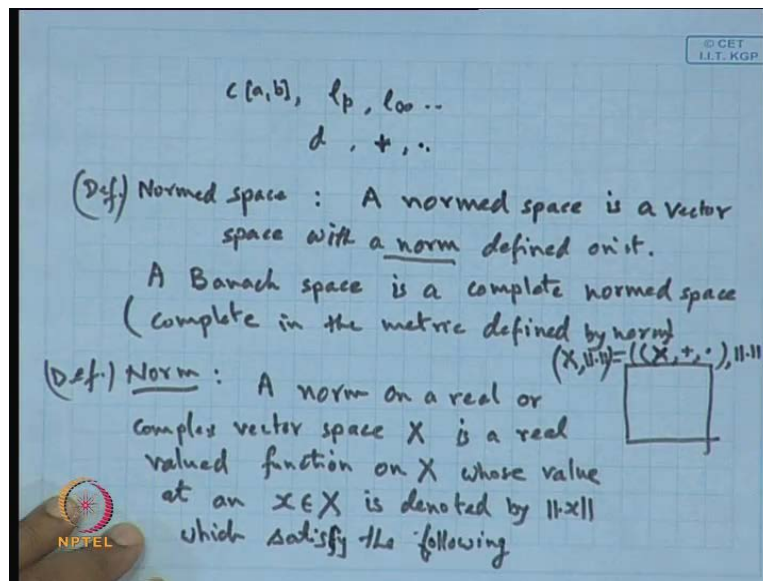 © CET
I.I.T. KGP
c[a,b], lp, l∞ ..
d , + , ..
(Def.) Normed space : A normed space is a vector
space with a norm defined on it.
A Banach space is a complete normed space
(complete in the metric defined by norm)
(X, ||.||) = ((X, +, ·), ||.||
(Def.) Norm : A norm on a real or
complex vector space X is a real
valued function on X whose value
at an x ∈ X is denoted by ||x||
which satisfy the following
NPTEL